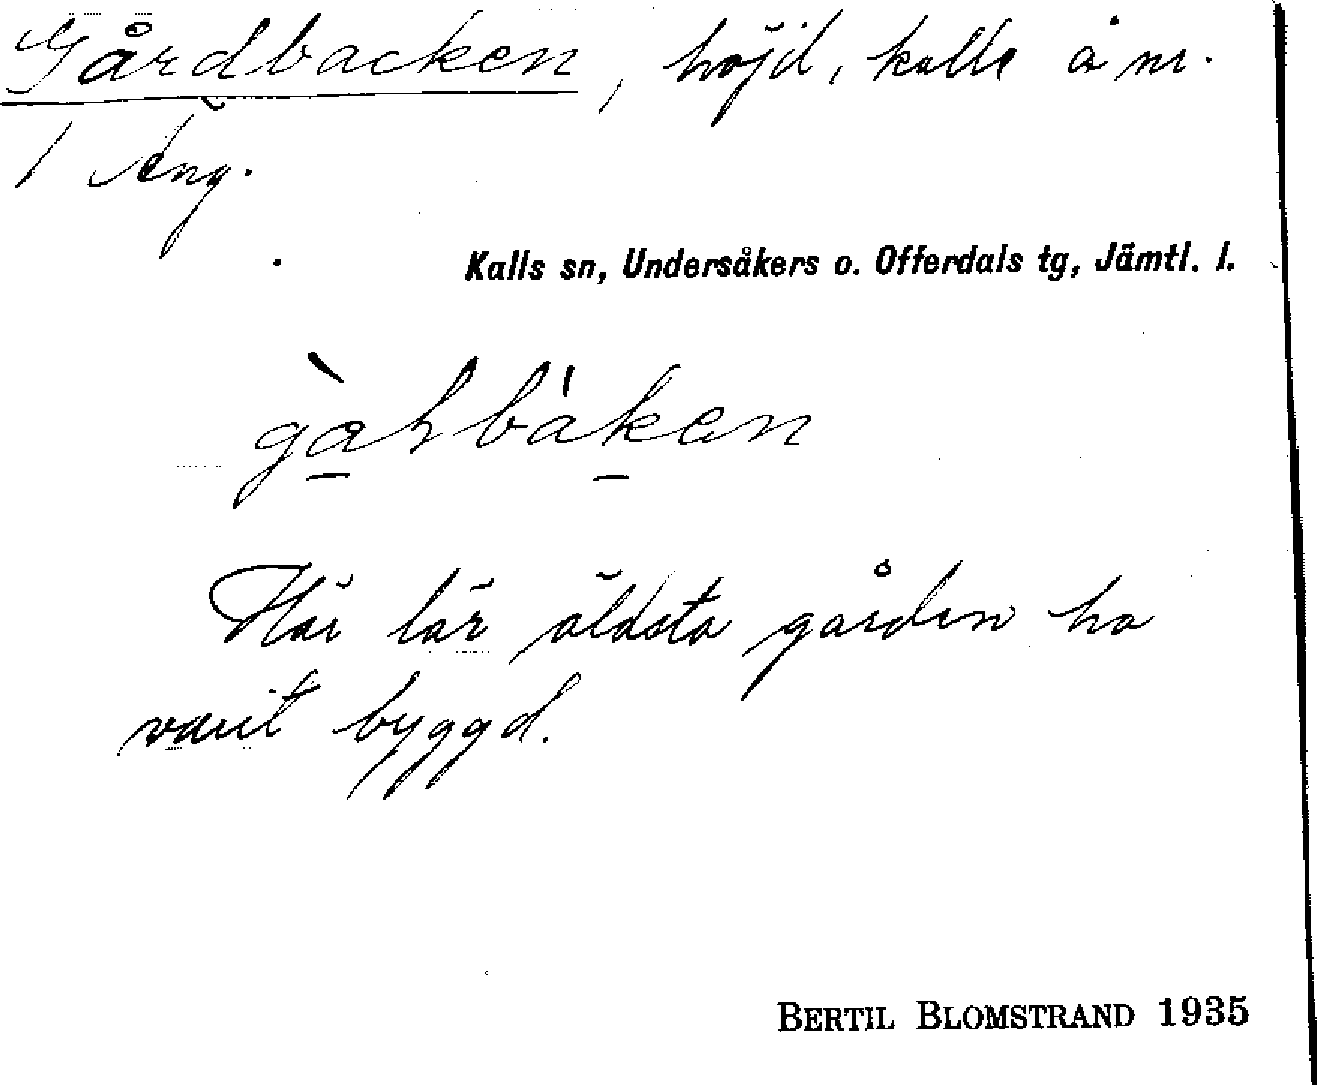 Gårdbacken, höjd, kulle å nr.
1 Äng.
Kalls sn, Undersåkers o. Offerdals tg, Jämtl. l.
Här lär äldsta gården ha
varit byggd.
BERTIL BLOMSTRAND 1935